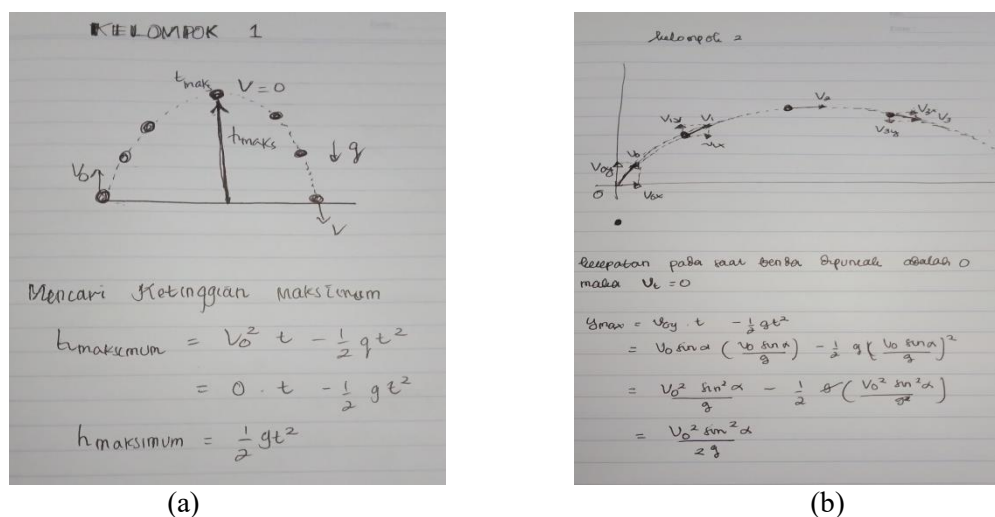 KELOMPOK 1
tmaks V = 0
hmaks
g
V₀
V
Mencari Ketinggian Maksimum
hmaksimum = V₀² t − 1/2 gt²
= 0 . t − 1/2 gt²
hmaksimum = 1/2 gt²
(a)
kelompok 2
V₂
V₁y V₁
V₃y
V₀y V₀ V₁x
0 V₀x
kecepatan pada saat benda dipuncak adalah 0
maka Vt = 0
ymax = V₀y . t − 1/2 gt²
= V₀ sin α (V₀ sin α / g) − 1/2 g (V₀ sin α / g)²
= V₀² sin² α / g − 1/2 g (V₀² sin² α / g²)
= V₀² sin² α / 2g
(b)